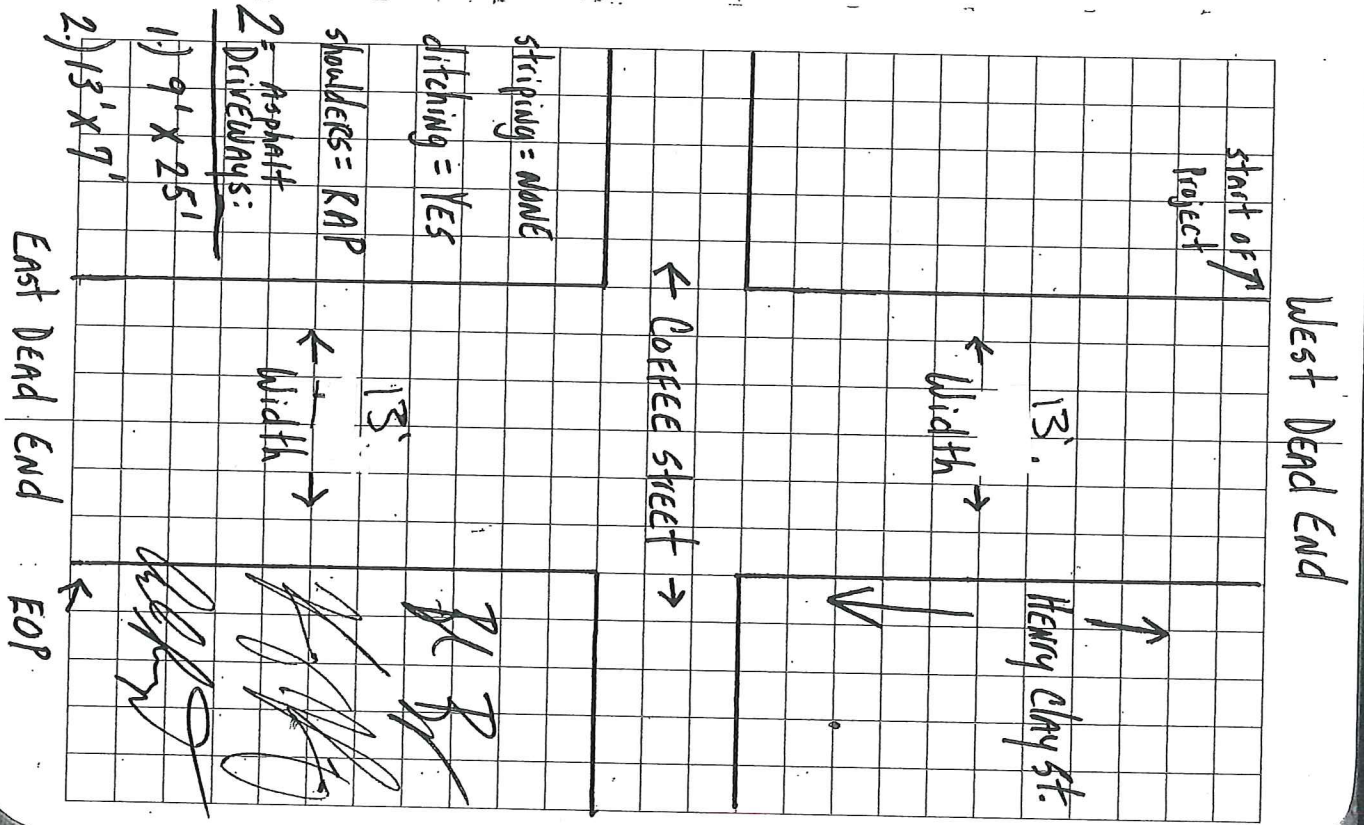 WEST DEAD END
start of
Project
13'.
Width
HENRY Clay St.
← COFFEE StREEt →
striping = NONE
ditching = YES
shoulders = RAP
2 = Asphalt
DRIVEWAYS:
1.) 9' X 25'
2.) 13' X 7'
13'.
Width
EAST DEAD END
EOP